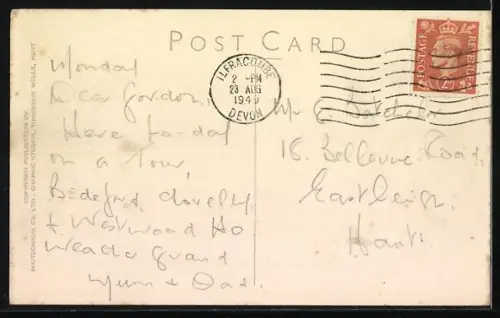 POST CARD
COPYRIGHT PUBLICATION BY
PHOTOCHROM CO. LTD., GRAPHIC STUDIOS, TUNBRIDGE WELLS, KENT
ILFRACOMBE
2 - PM
23 AUG
1949
DEVON
POSTAGE
REVENUE
Monday
Dear Gordon,
Here to-day
on a tour,
Bideford, Clovelly
& Westwood Ho
Weather grand
Mum & Dad.
Mr G. Batchelor
18. Bellevue Road,
Eastleigh,
Hants.